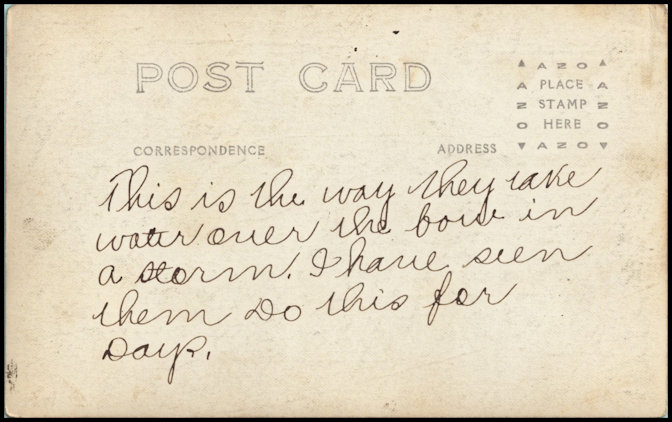 POST CARD
▲ AZO ▲
A PLACE A
N STAMP N
O HERE O
▼ AZO ▼
CORRESPONDENCE ADDRESS
This is the way they take
water over the bow in
a storm. I have seen
them Do this for
Days.